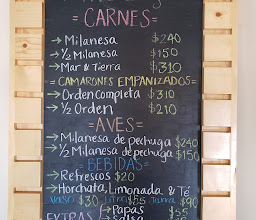 =CARNES=
→Milanesa $240
→½ Milanesa $150
→Mar & Tierra $310
=CAMARONES EMPANIZADOS=
→Orden Completa $310
→½ Orden $210
=AVES=
→Milanesa de pechuga $240
→½ Milanesa de pechuga $150
=BEBIDAS=
→Refrescos $20
→Horchata, Limonada & Té
Vaso $30 Litro $55 Jarra $90
EXTRAS →Papas $55
→Salsa